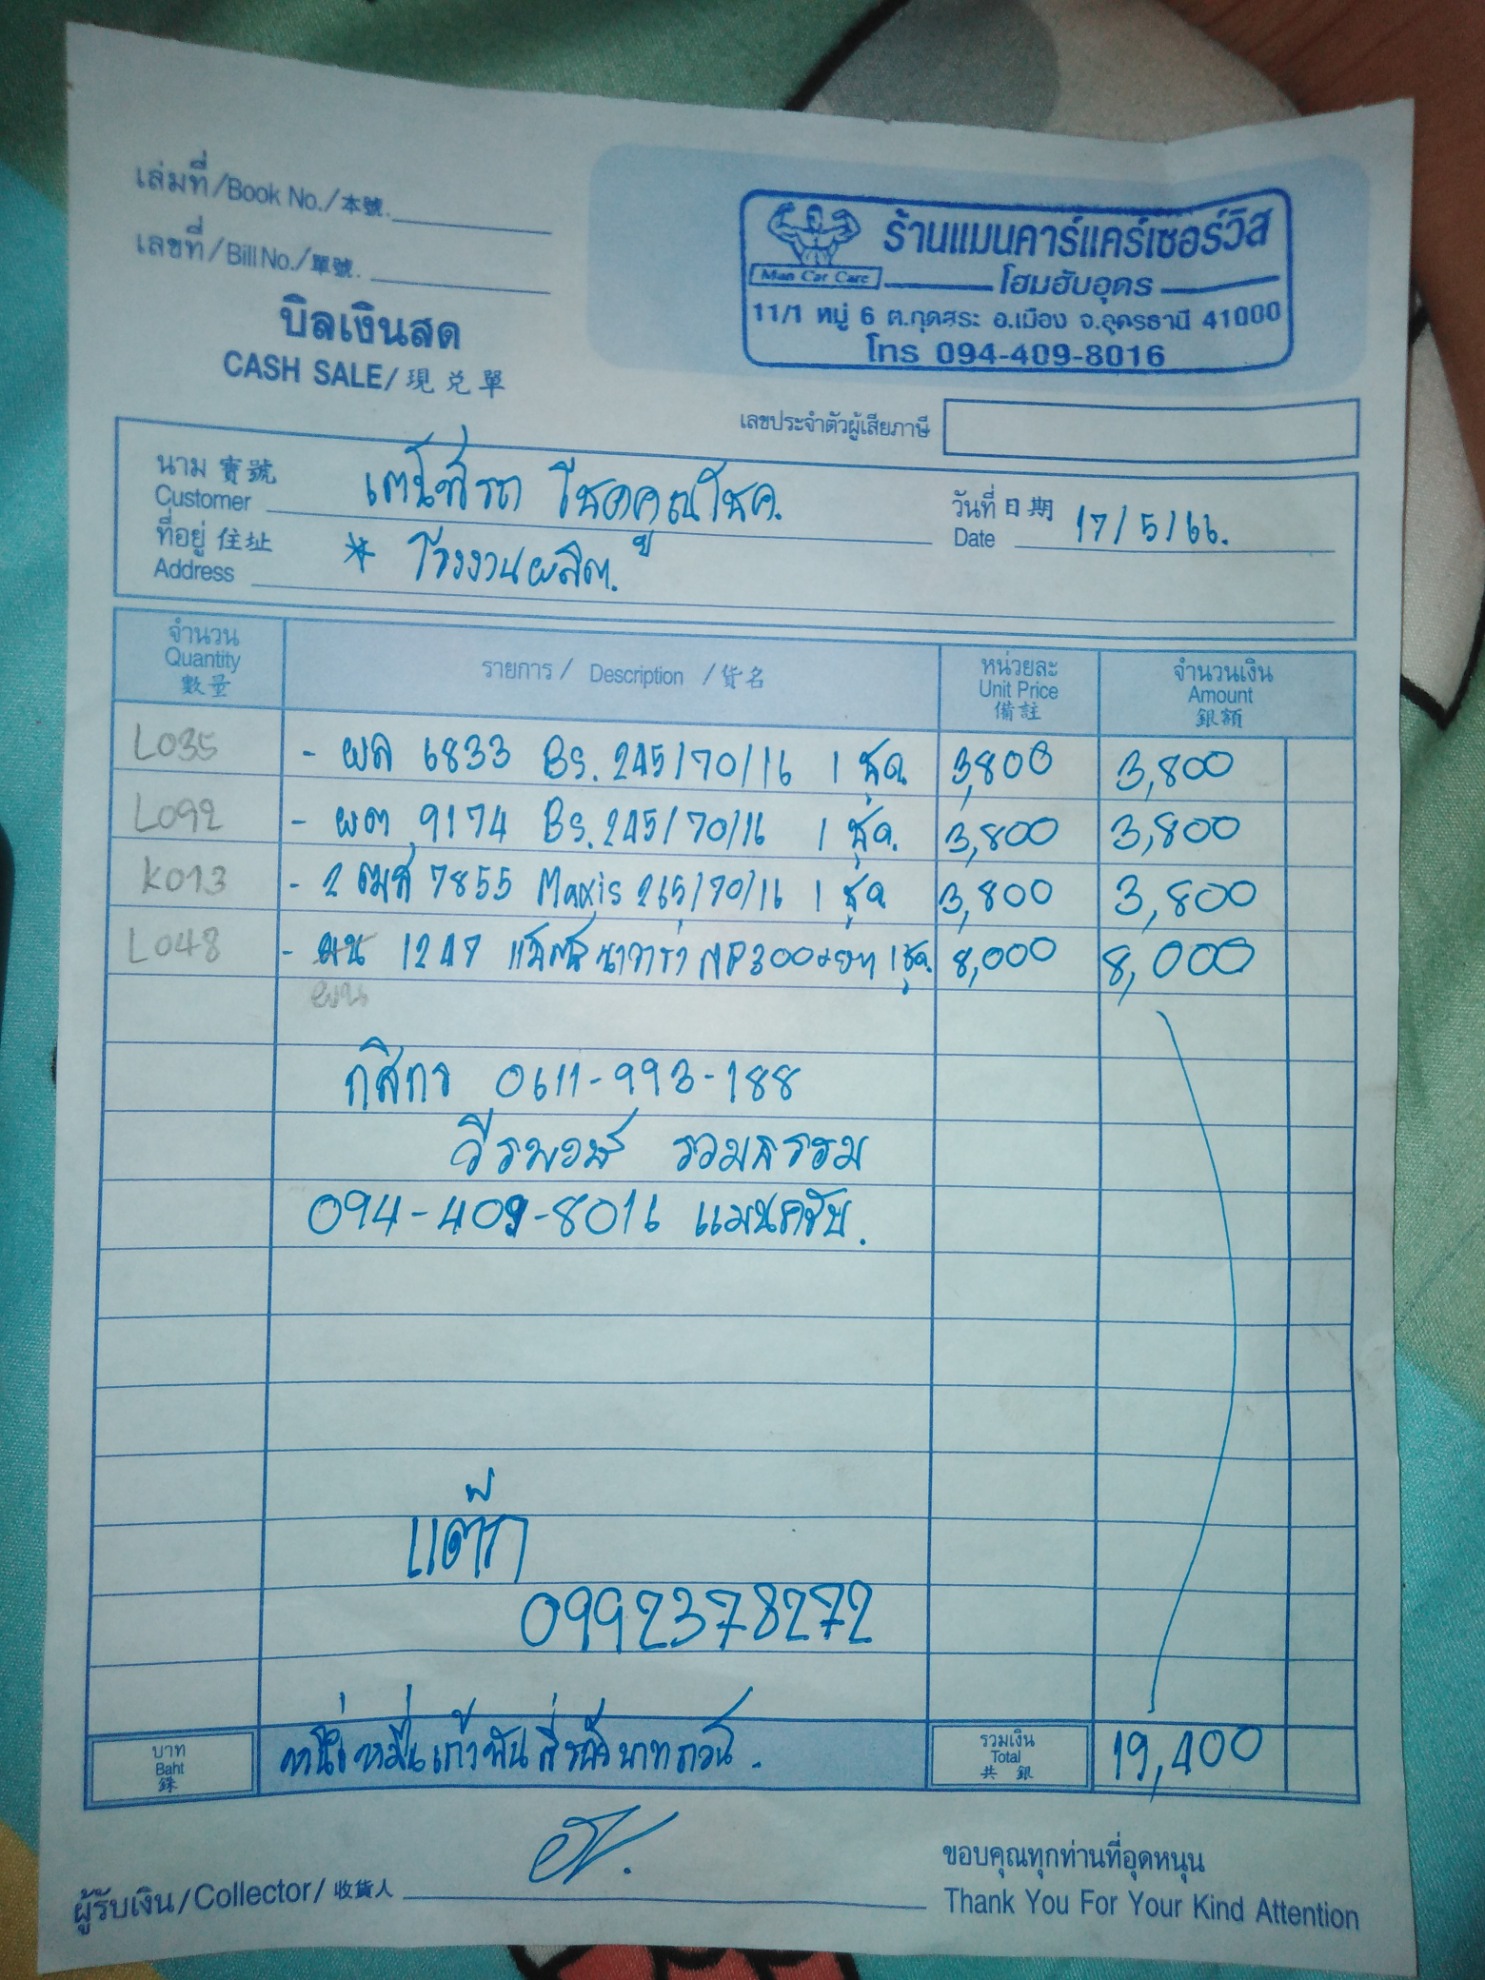 เล่มที่/Book No./本號.
เลขที่/Bill No./單號.
บิลเงินสด
CASH SALE/現兌單
ร้านแมนคาร์แคร์เซอร์วิส
Man Car Care
โฮมฮับอุดร
11/1 หมู่ 6 ต.กุดสระ อ.เมือง จ.อุดรธานี 41000
โทร 094-409-8016
เลขประจำตัวผู้เสียภาษี
นาม 寶號
Customer เต้นท์รถ โชคคูณโชค.
ที่อยู่ 住址
Address * โรงงานผลิต.
วันที่ 日期
Date 17/5/66.
จำนวน
Quantity
數量
รายการ / Description / 貨名
หน่วยละ
Unit Price
備註
จำนวนเงิน
Amount
銀額
L035 - ผล 6833 Bs. 245/70/16 1 ชุด 3,800 3,800
L092 - ผต 9174 Bs. 245/70/16 1 ชุด. 3,800 3,800
K013 - 2 ฒศ 7855 Maxis 265/70/16 1 ชุด 3,800 3,800
L048 - 1247 นาวาร่า NP300 1 ชุด. 8,000 8,000
ผน
กสิกร 0611-993-188
วีรพงษ์ รวมธรรม
094-409-8016 แมนครับ.
0992378272
บาท
Baht
銖
หนึ่งหมื่นเก้าพันสี่ร้อยบาทถ้วน.
รวมเงิน
Total
共銀
19,400
ผู้รับเงิน/Collector/收貨人
ขอบคุณทุกท่านที่อุดหนุน
Thank You For Your Kind Attention